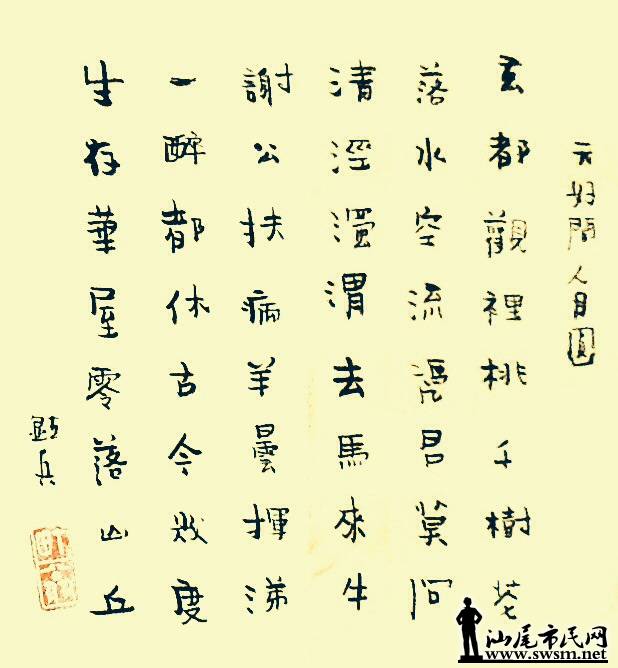 元好問人月圓
玄都觀裡桃千樹花
落水空流憑君莫問
清涇濁渭去馬來牛
謝公扶病羊曇揮涕
一醉都休古今幾度
生存華屋零落山丘
兵
汕尾市民网
www.swsm.net